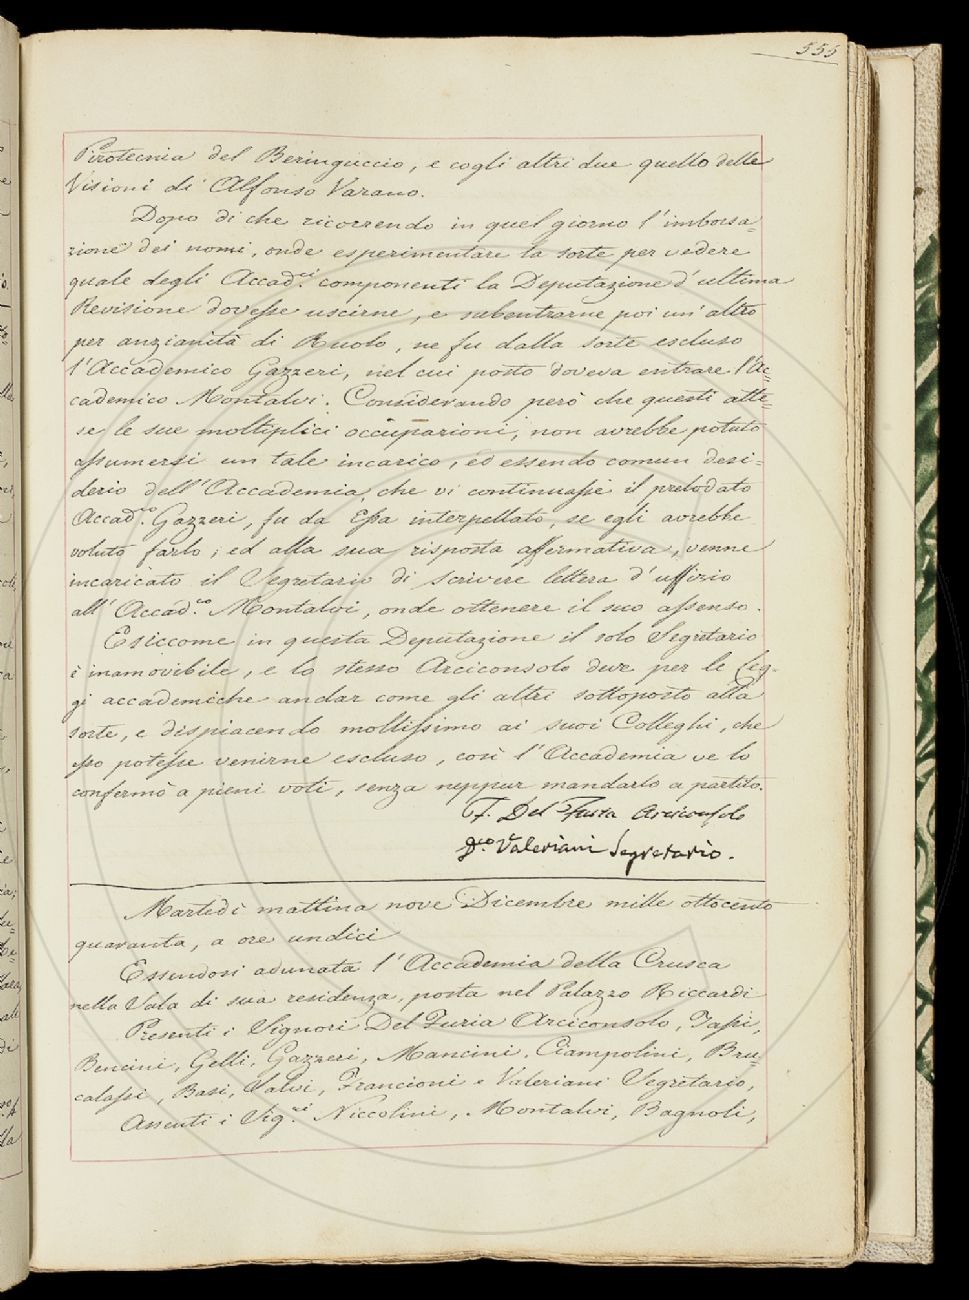 555
Pirotecnia del Beringuccio, e cogli altri due quello delle
Visioni di Alfonso Varano.
Dopo di che ricorrendo in quel giorno l'imborsa=
zione dei nomi, onde esperimentare la sorte per vedere
quale degli Accad.ci componenti la Deputazione d'ultima
Revisione dovesse uscirne, e subentrarne poi un'altro
per anzianità di Ruolo, ne fu dalla sorte escluso
l'Accademico Gazzeri, nel cui posto doveva entrare l'Ac=
cademico Montalvi. Considerando però che questi atte=
se le sue moltiplici occupazioni, non avrebbe potuto
assumersi un tale incarico, ed essendo comun desi=
derio dell'Accademia, che vi continuasse il prelodato
Accad.co Gazzeri, fu da Essa interpellato, se egli avrebbe
voluto farlo; ed alla sua risposta affermativa, venne
incaricato il Segretario di scrivere lettera d'uffizio
all'Accad.co Montalvi, onde ottenere il suo assenso.
E siccome in questa Deputazione il solo Segretario
è inamovibile, e lo stesso Arciconsolo deve per le Leg-
gi accademiche andar come gli altri sottoposto alla
sorte, e dispiacendo moltissimo ai suoi Colleghi, che
esso potesse venirne escluso, così l'Accademia ve lo
confermò a pieni voti, senza neppur mandarlo a partito.
F. Del Furia Arciconsolo
D.co Valeriani Segretario.
Martedì mattina nove Dicembre mille ottocento
quaranta, a ore undici
Essendosi adunata l'Accademia della Crusca
nella Sala di sua residenza, posta nel Palazzo Riccardi
Presenti i Signori Del Furia Arciconsolo, Tassi,
Bencini, Gelli, Gazzeri, Mancini, Ciampolini, Bru=
calassi, Basi, Salvi, Francioni e Valeriani Segretario,
Assenti i Sig.ri Niccolini, Montalvi, Bagnoli,